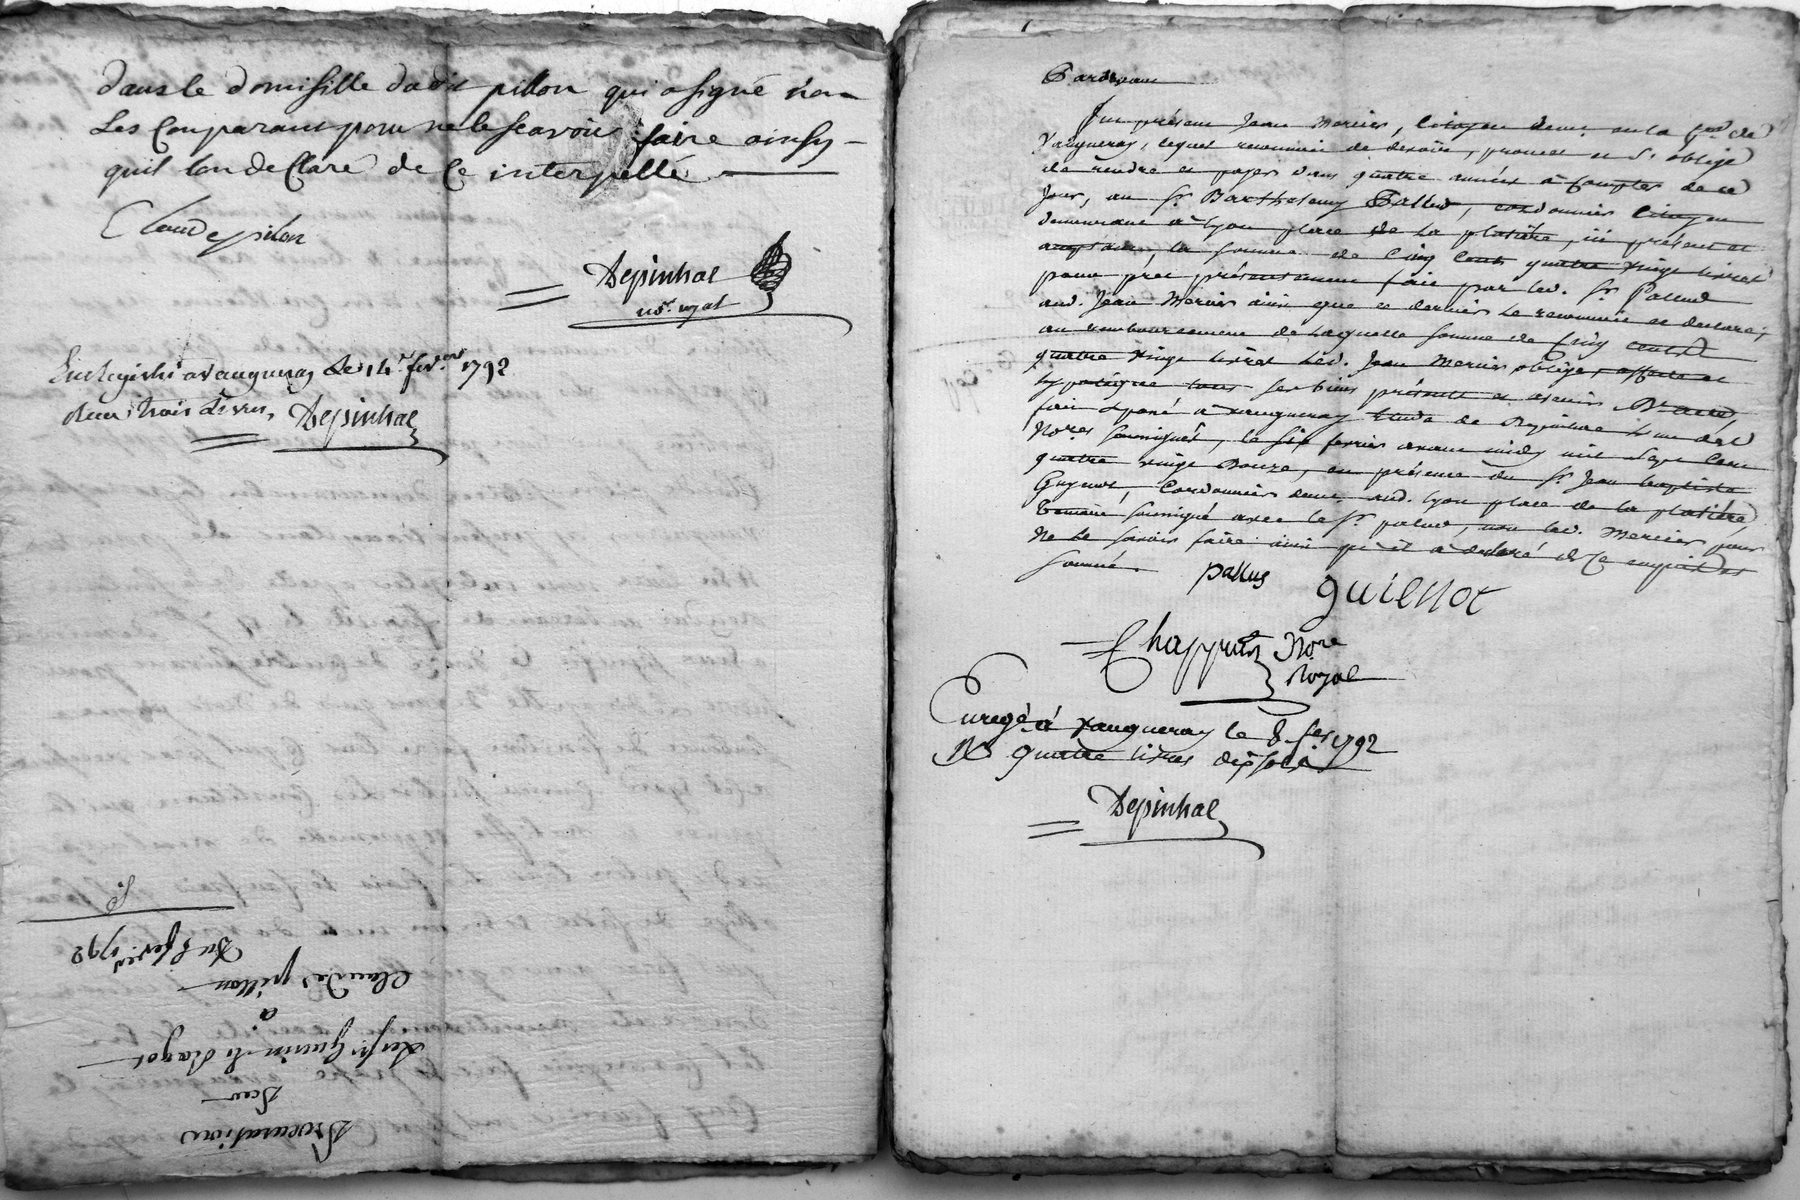 dans le domisille dudit pillon qui a signé non
Les Comparant pour ne le scavoir faire ainsy
quil lon de Claré de Ce interpellé
Claude pilon
Depinhac
no.re royal
Enregistré a Vaugneray le 14 fev.er 1792
Reçu trois livres, Depinhac
Procurations
Par
Guerin
à
Claude pillon
Du 8 fevrier 1792
Pardevant
Fut présent Jean Mercier, Citoyen dem.t en la de
Vaugneray, lequel reconnoit de devoir, promet et s'oblige
de rendre et payer dans quatre années à compter de ce
Jour, au Sr. Barthelemy Pallud, cordonnier Citoyen
demeurant à Lyon place de la platière, ici présent et
acceptant, la somme de Cinq Cent quatre vingt livres
pour pret présentement fait par led. Sr. Pallud
aud. Jean Mercier ainsi que ce dernier le reconnoit et declare;
au remboursement de laquelle somme de Cinq cent
quatre vingt livres led. Jean Mercier oblige, affecte et
hypotèque tous ses biens présents et avenir
fait et passé à Vaugneray Etude de l'un des
No.res soussignés, le six fevrier avant midy mil sept cent
quatre vingt Douze, en présence de Sr. Jean baptiste
Cordonnier dem.t aud. Lyon place de la platière
temoin soussigné avec le Sr. palud, non led. Mercier pour
ne le savoir faire ainsi qu'il a declaré de Ce enquis et
sommé.
pallus guillot
Chappuis No.re
Royal
Enregé à Vaugneray le 8 fev 1792
R. quatre livres dix sols
Depinhac